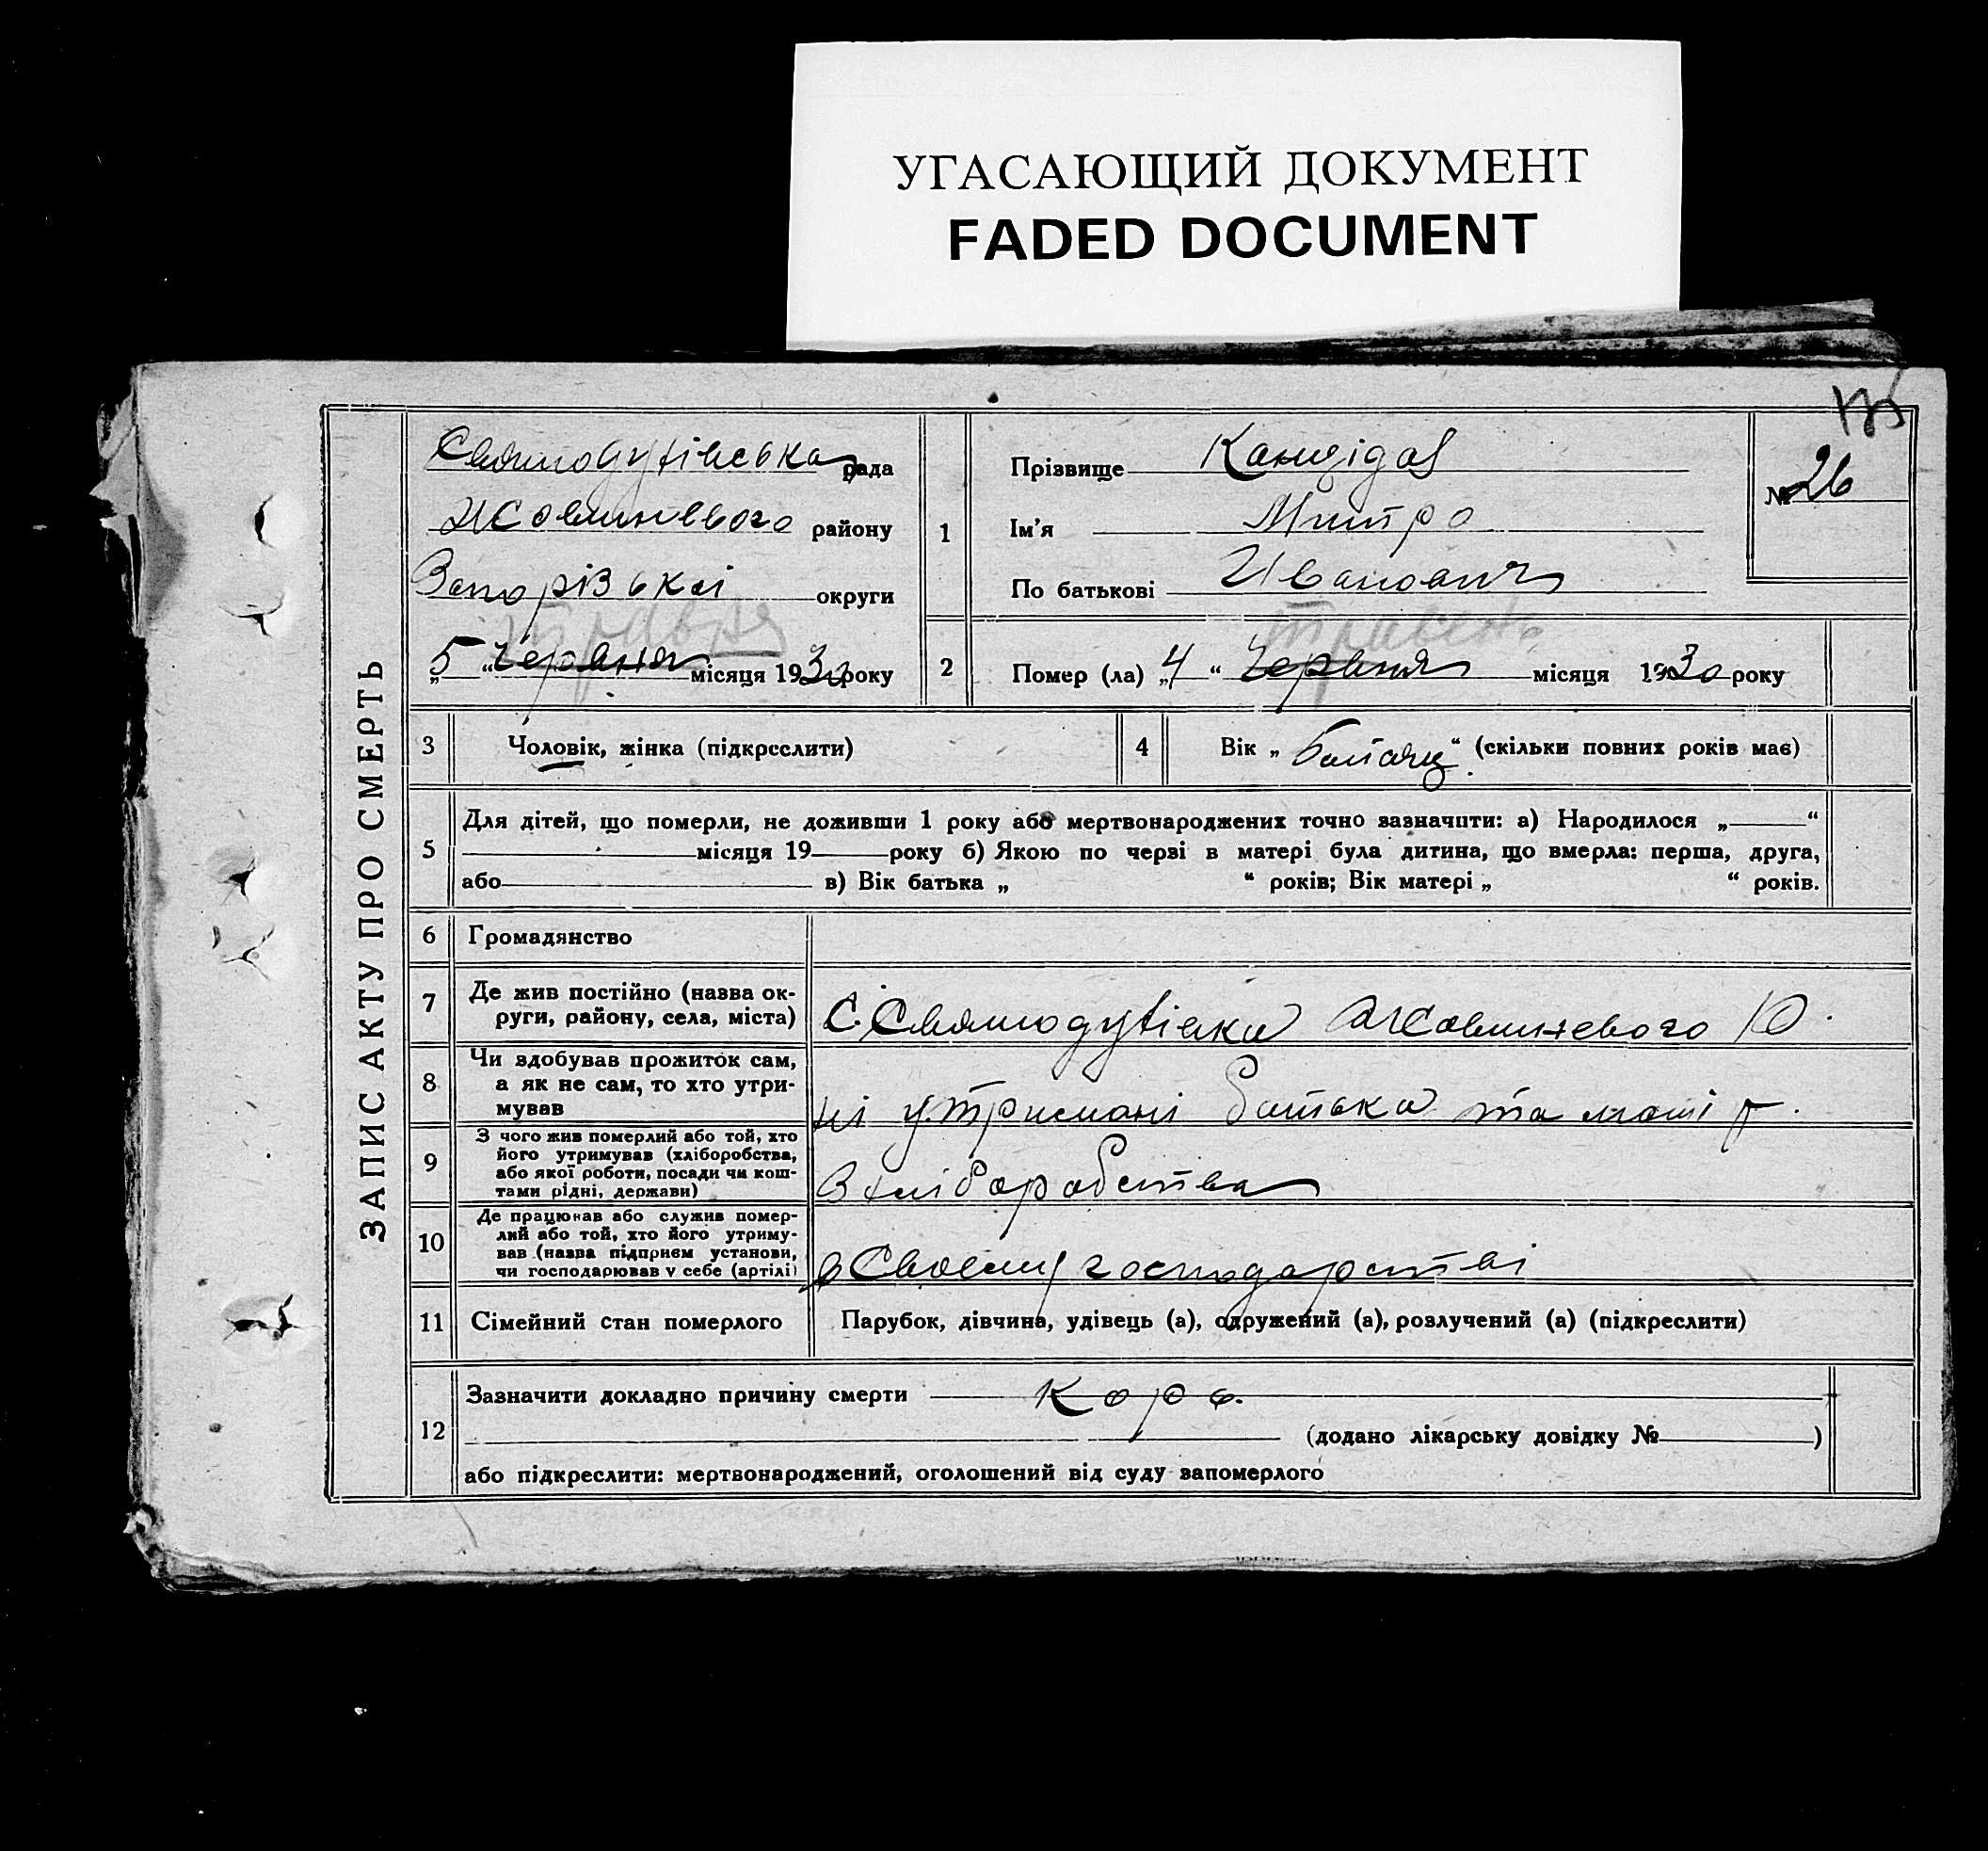 УГАСАЮЩИЙ ДОКУМЕНТ
FADED DOCUMENT
175
ЗАПИС АКТУ ПРО СМЕРТЬ
Святодухівська рада
Жовтневого району
Запорізької округи
травня
„5“ Червня місяця 1930 року
1
Прізвище Кандіда
Ім'я Митро
По батькові Иванович
№ 26
травень
2 Помер (ла) „4“ Червня місяця 1930 року
3 Чоловік, жінка (підкреслити)
4 Вік „ “ (скільки повних років має)
5 Для дітей, що померли, не доживши 1 року або мертвонароджених точно зазначити: а) Народилося „ “
місяця 19 року б) Якою по черві в матері була дитина, що вмерла: перша, друга,
або в) Вік батька „ “ років; Вік матері „ “ років.
6 Громадянство
7 Де жив постійно (назва ок-
руги, району, села, міста)
С. Святодухівка Жовтневого Р.
8 Чи здобував прожиток сам,
а як не сам, то хто утри-
мував
на утримані батька та матір.
9 З чого жив померлий або той, хто
його утримував (хліборобства,
або якої роботи, посади чи кош-
тами рідні, держави)
З хліборобства
10 Де працював або служив помер-
лий або той, хто його утриму-
вав (назва підприєм установи,
чи господарював у себе (артілі)
в Своему господарстві
11 Сімейний стан померлого Парубок, дівчина, удівець (а), одружений (а), розлучений (а) (підкреслити)
12 Зазначити докладно причину смерти Кора.
(додано лікарську довідку № )
або підкреслити: мертвонароджений, оголошений від суду запомерлого